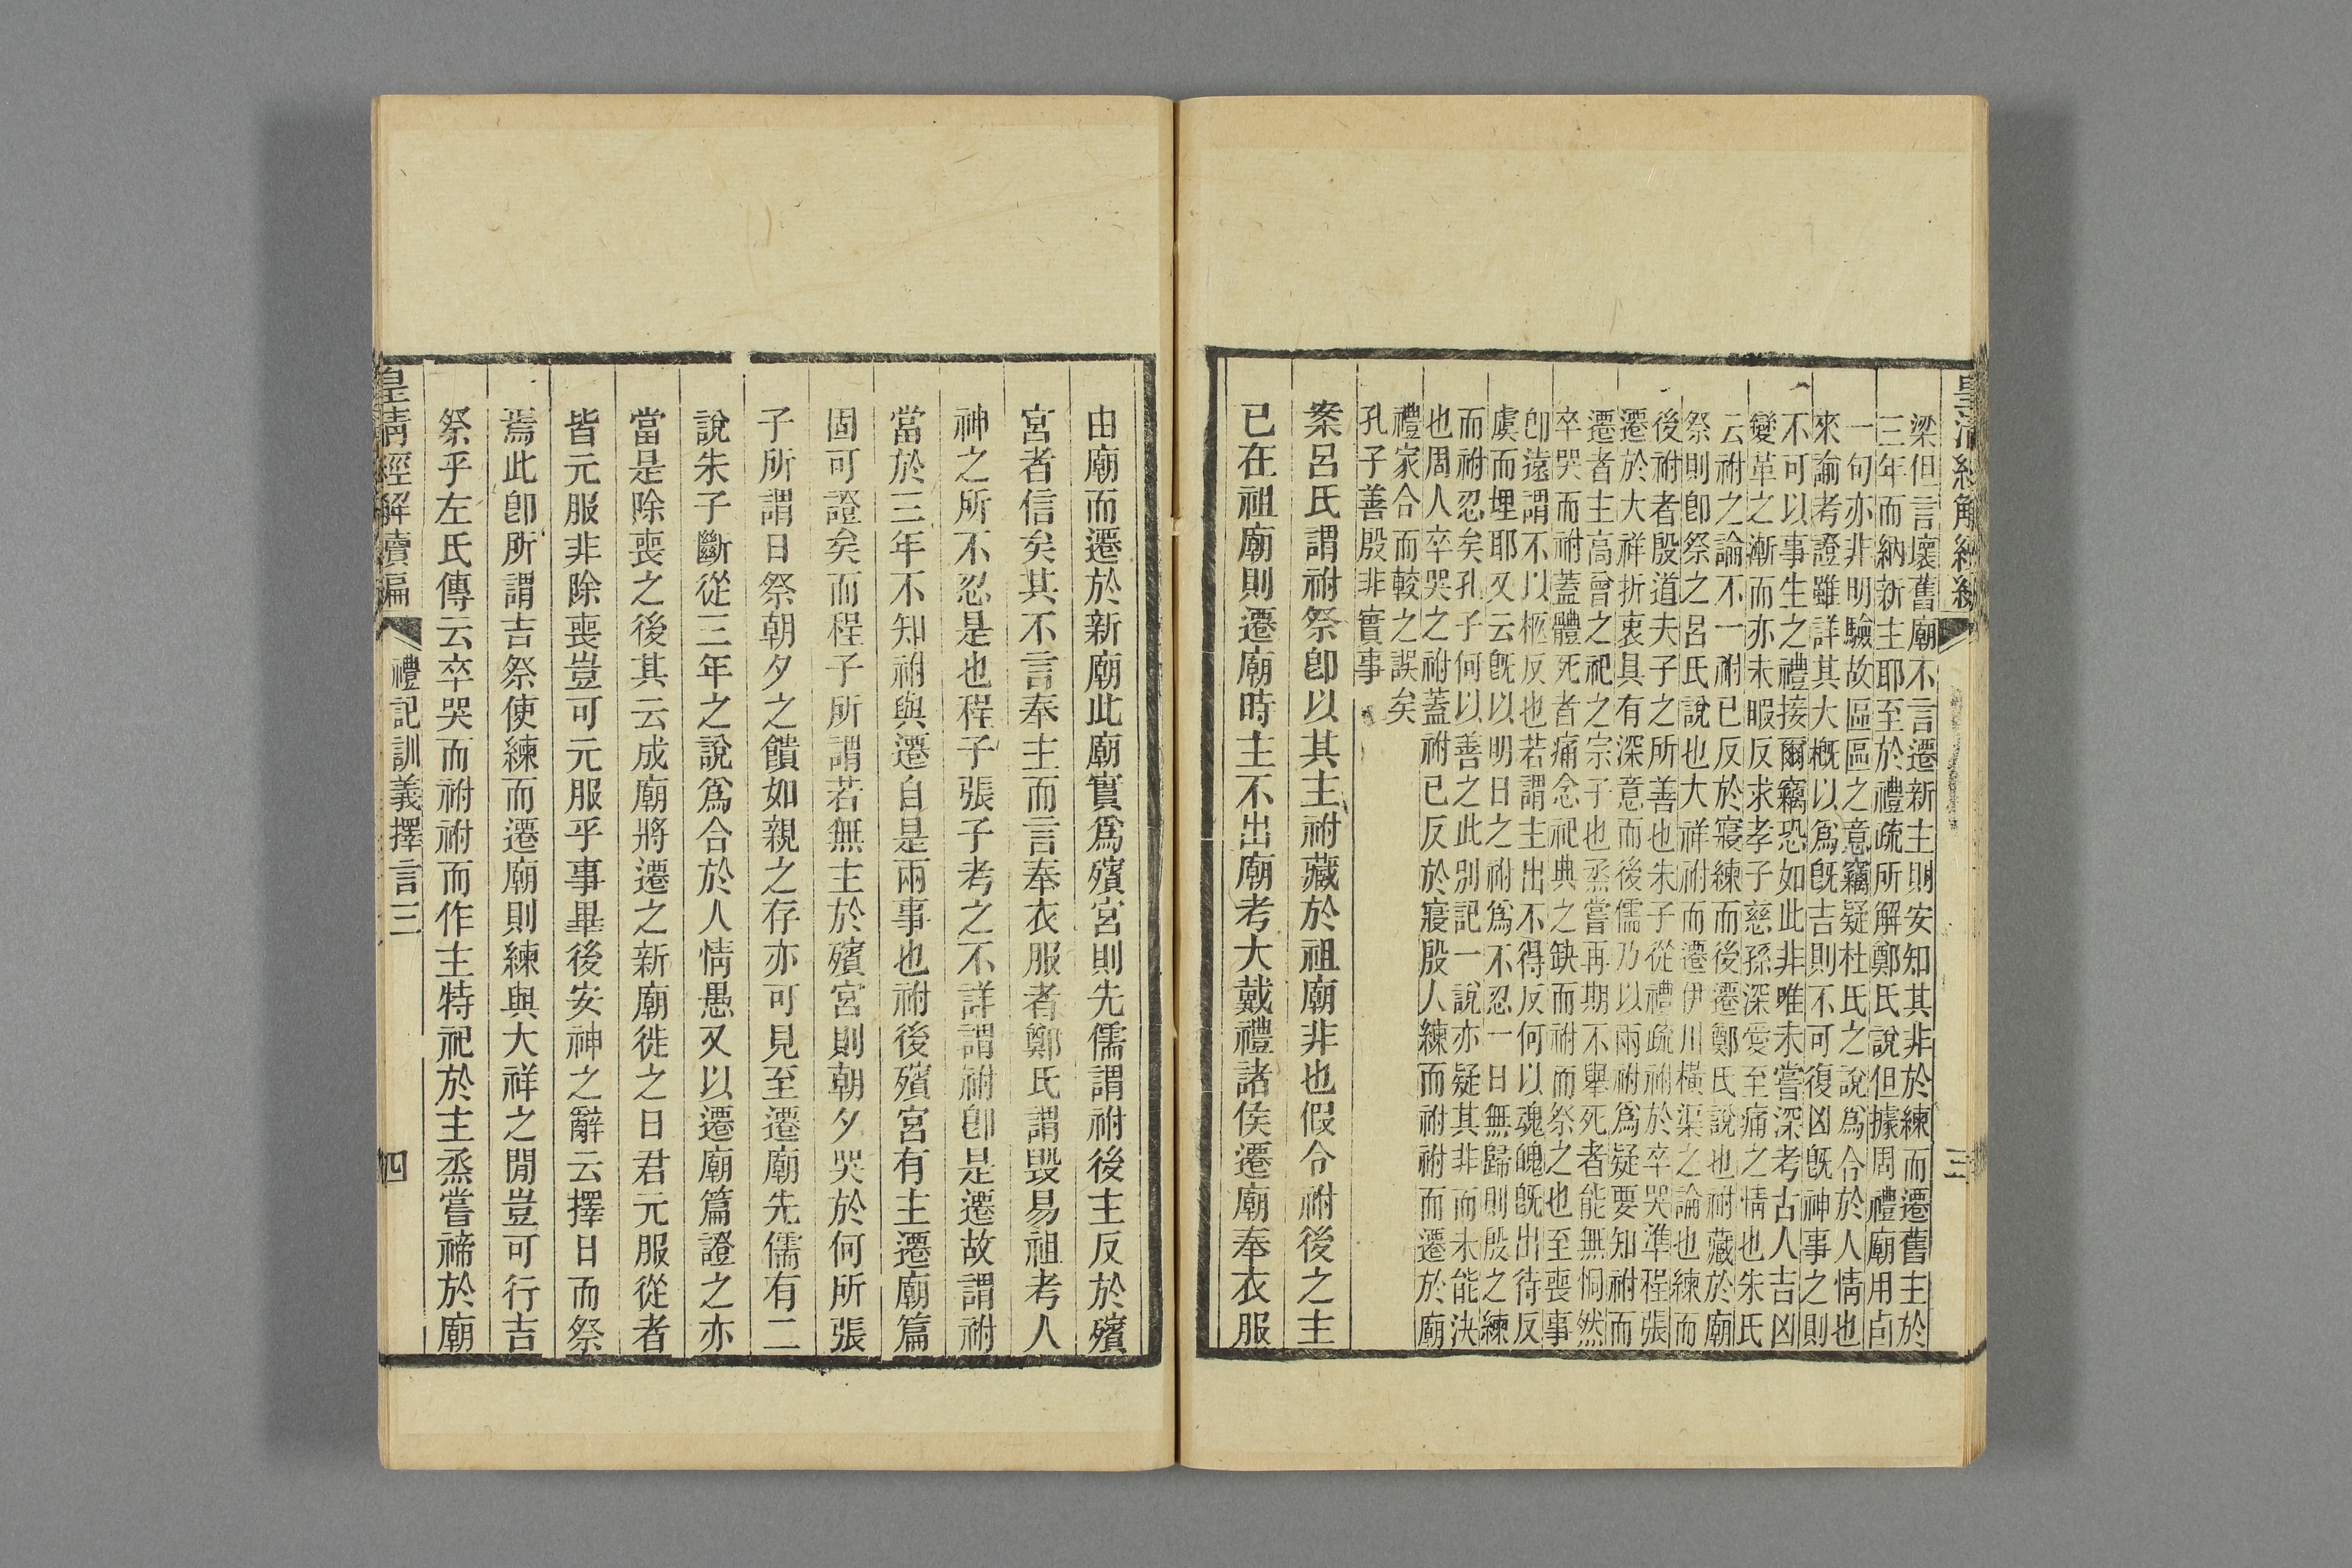 皇清經解續
三
梁但言壞舊廟不言遷新主則安知其非於練而遷舊主於
三年而納新主耶至於禮疏所解鄭氏說但據周禮廟用卣
一句亦非明驗故區區之意竊疑杜氏之說爲合於人情也
來諭考證雖詳其大概以爲旣吉則不可復凶旣神事之則
不可以事生之禮接爾竊恐如此非唯未嘗深考古人吉凶
變革之漸而亦未暇反求孝子慈孫深愛至痛之情也朱氏
云祔之論不一祔已反於寢練而後遷鄭氏說也祔藏於廟
祭則卽祭之呂氏說也大祥祔而遷伊川橫渠之論也練而
後祔者殷道夫子之所善也朱子從禮疏祔於卒哭準程張
遷於大祥折衷具有深意而後儒乃以兩祔爲疑要知祔而
遷者主高曾之祀之宗子也烝嘗再期不舉死者能無恫然
卒哭而祔蓋體死者痛念祀典之缺而祔而祭之也至喪事
卽遠謂不以柩反也若謂主出不得反何以魂魄旣出待反
虞而埋耶又云旣以明日之祔爲不忍一日無歸則殷之練
而祔忍矣孔子何以善之此別記一說亦疑其非而未能決
也周人卒哭之祔蓋祔已反於寢殷人練而祔祔而遷於廟
禮家合而較之誤矣
孔子善殷非實事
案呂氏謂祔祭卽以其主祔藏於祖廟非也假令祔後之主
已在祖廟則遷廟時主不出廟考大戴禮諸侯遷廟奉衣服
由廟而遷於新廟此廟實爲殯宮則先儒謂祔後主反於殯
宮者信矣其不言奉主而言奉衣服者鄭氏謂毀易祖考人
神之所不忍是也程子張子考之不詳謂祔卽是遷故謂祔
當於三年不知祔與遷自是兩事也祔後殯宮有主遷廟篇
固可證矣而程子所謂若無主於殯宮則朝夕哭於何所張
子所謂日祭朝夕之饋如親之存亦可見至遷廟先儒有二
說朱子斷從三年之說爲合於人情愚又以遷廟篇證之亦
當是除喪之後其云成廟將遷之新廟徙之日君元服從者
皆元服非除喪豈可元服乎事畢後安神之辭云擇日而祭
焉此卽所謂吉祭使練而遷廟則練與大祥之閒豈可行吉
祭乎左氏傳云卒哭而祔祔而作主特祀於主烝嘗禘於廟
皇清經解續編
禮記訓義擇言三
四